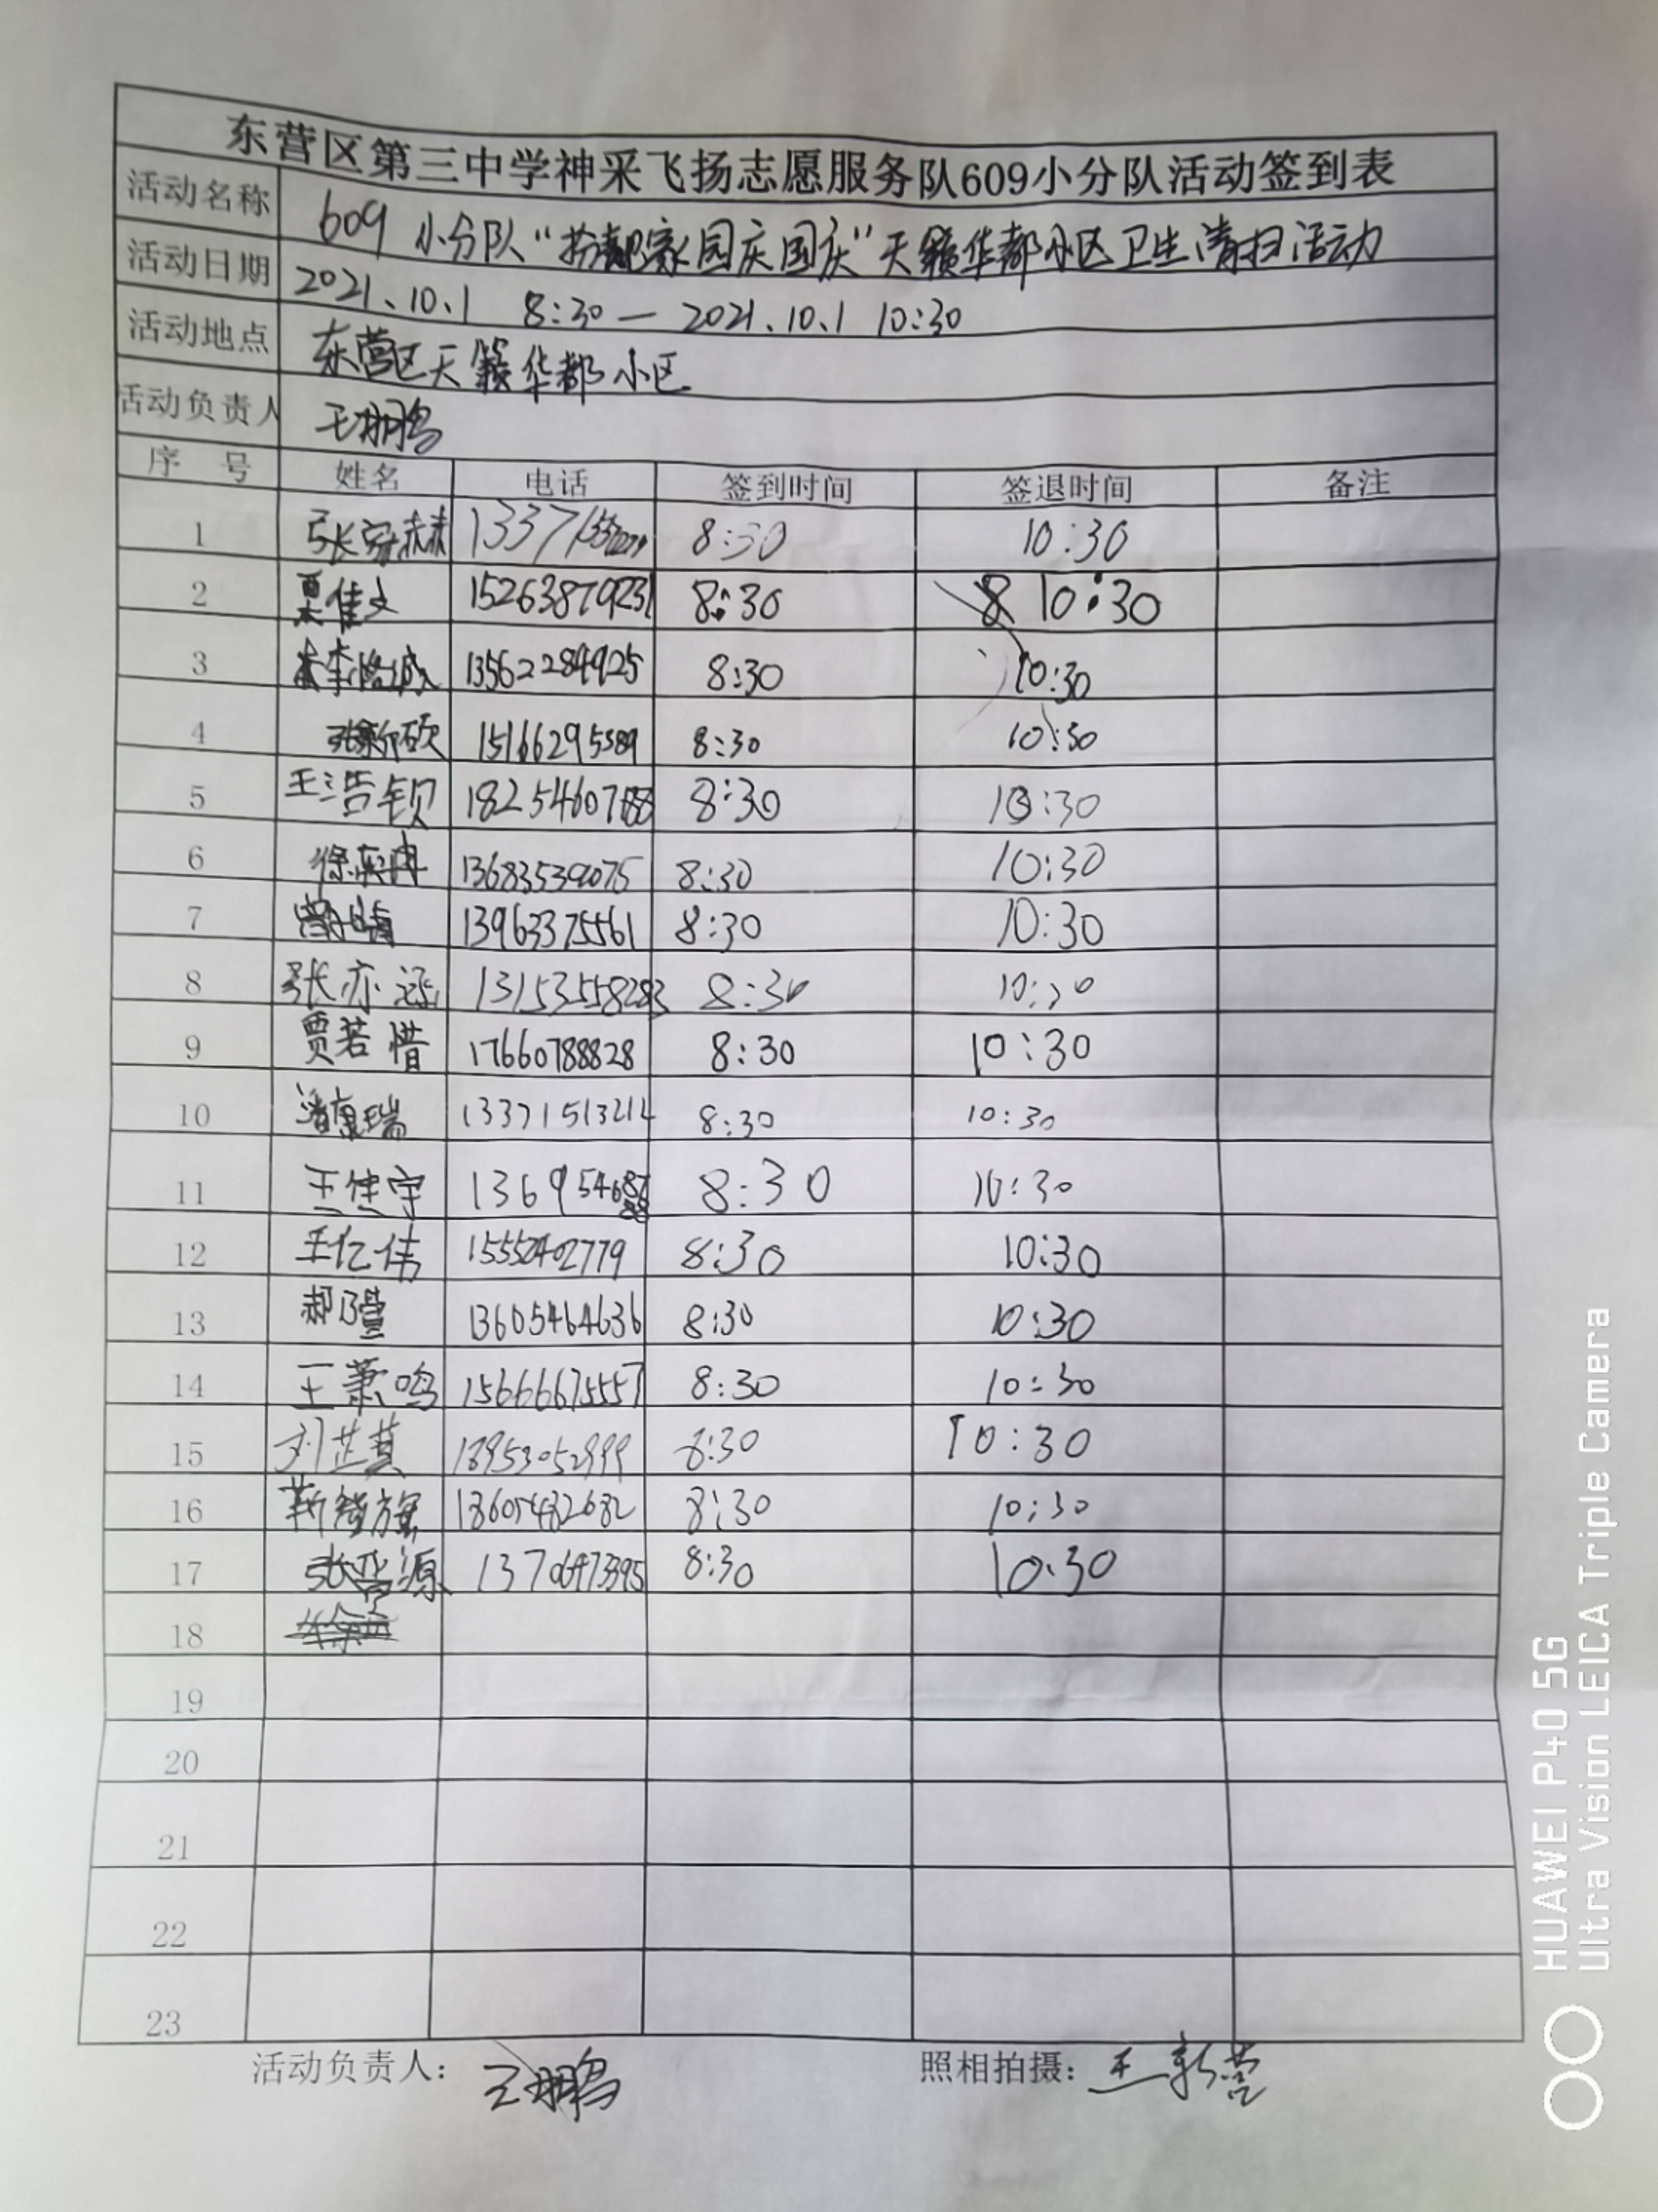 东营区第三中学神采飞扬志愿服务队609小分队活动签到表
活动名称 609小分队“扮靓家园庆国庆”天籁华都小区卫生清扫活动
活动日期 2021、10、1 8:30—2021、10、1 10:30
活动地点 东营区天籁华都小区
活动负责人 王翔鹏
序号 姓名 电话 签到时间 签退时间 备注
1 8:30 10:30
2 栗佳文 15263879231 8:30 10:30
3 13562284925 8:30 10:30
4 15166295589 8:30 10:30
5 王浩钡 8:30 10:30
6 13683539075 8:30 10:30
7 13963375561 8:30 10:30
8 张亦涵 8:30 10:30
9 贾若惜 17660788828 8:30 10:30
10 13371513212 8:30 10:30
11 王佳宇 8:30 10:30
12 王亿伟 15552402779 8:30 10:30
13 郝乃萱 13605464636 8:30 10:30
14 王萧鸣 15666675557 8:30 10:30
15 刘芷萁 18953052999 8:30 10:30
16 8:30 10:30
17 张晋源 8:30 10:30
18
19
20
21
22
23
活动负责人： 王翔鹏 照相拍摄： 王新营
HUAWEI P40 5G
Ultra Vision LEICA Triple Camera